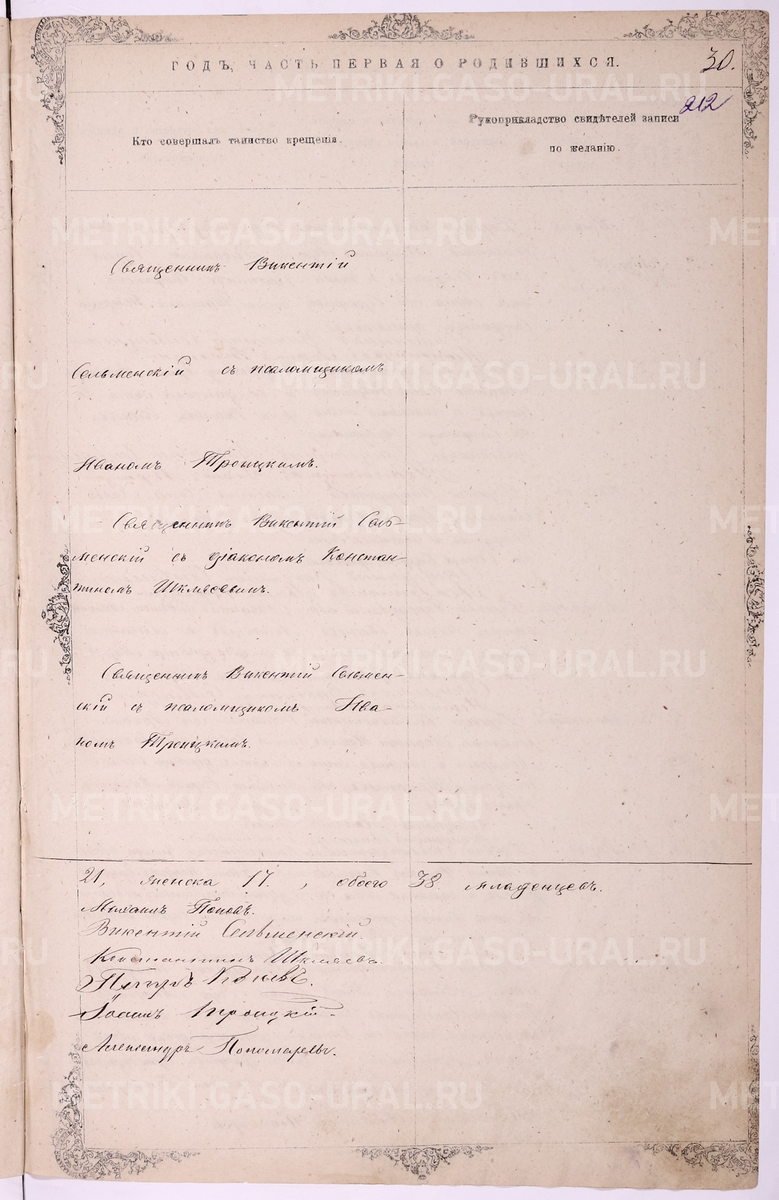 ГОДЪ, ЧАСТЬ ПЕРВАЯ О РОДИВШИХСЯ.
30.
212
Кто совершалъ таинство крещенія.
Рукоприкладство свидѣтелей записи
по желанію.
METRIKI.GASO-URAL.RU
Священникъ Викентій
Сельменскій съ псаломщикомъ
Иваномъ Троицкимъ.
Священникъ Викентій Сель-
менскій съ діакономъ Констан-
тиномъ Шкляевымъ.
Священникъ Викентій Сельмен-
скій съ псаломщикомъ Ива-
номъ Троицкимъ.
21, женска 17, обоего 38 младенцевъ.
Михаилъ Поповъ.
Викентій Сельменскій.
Константинъ Шкляевъ.
Петръ
Іоаннъ Троицкій.
Александръ Пономаревъ.